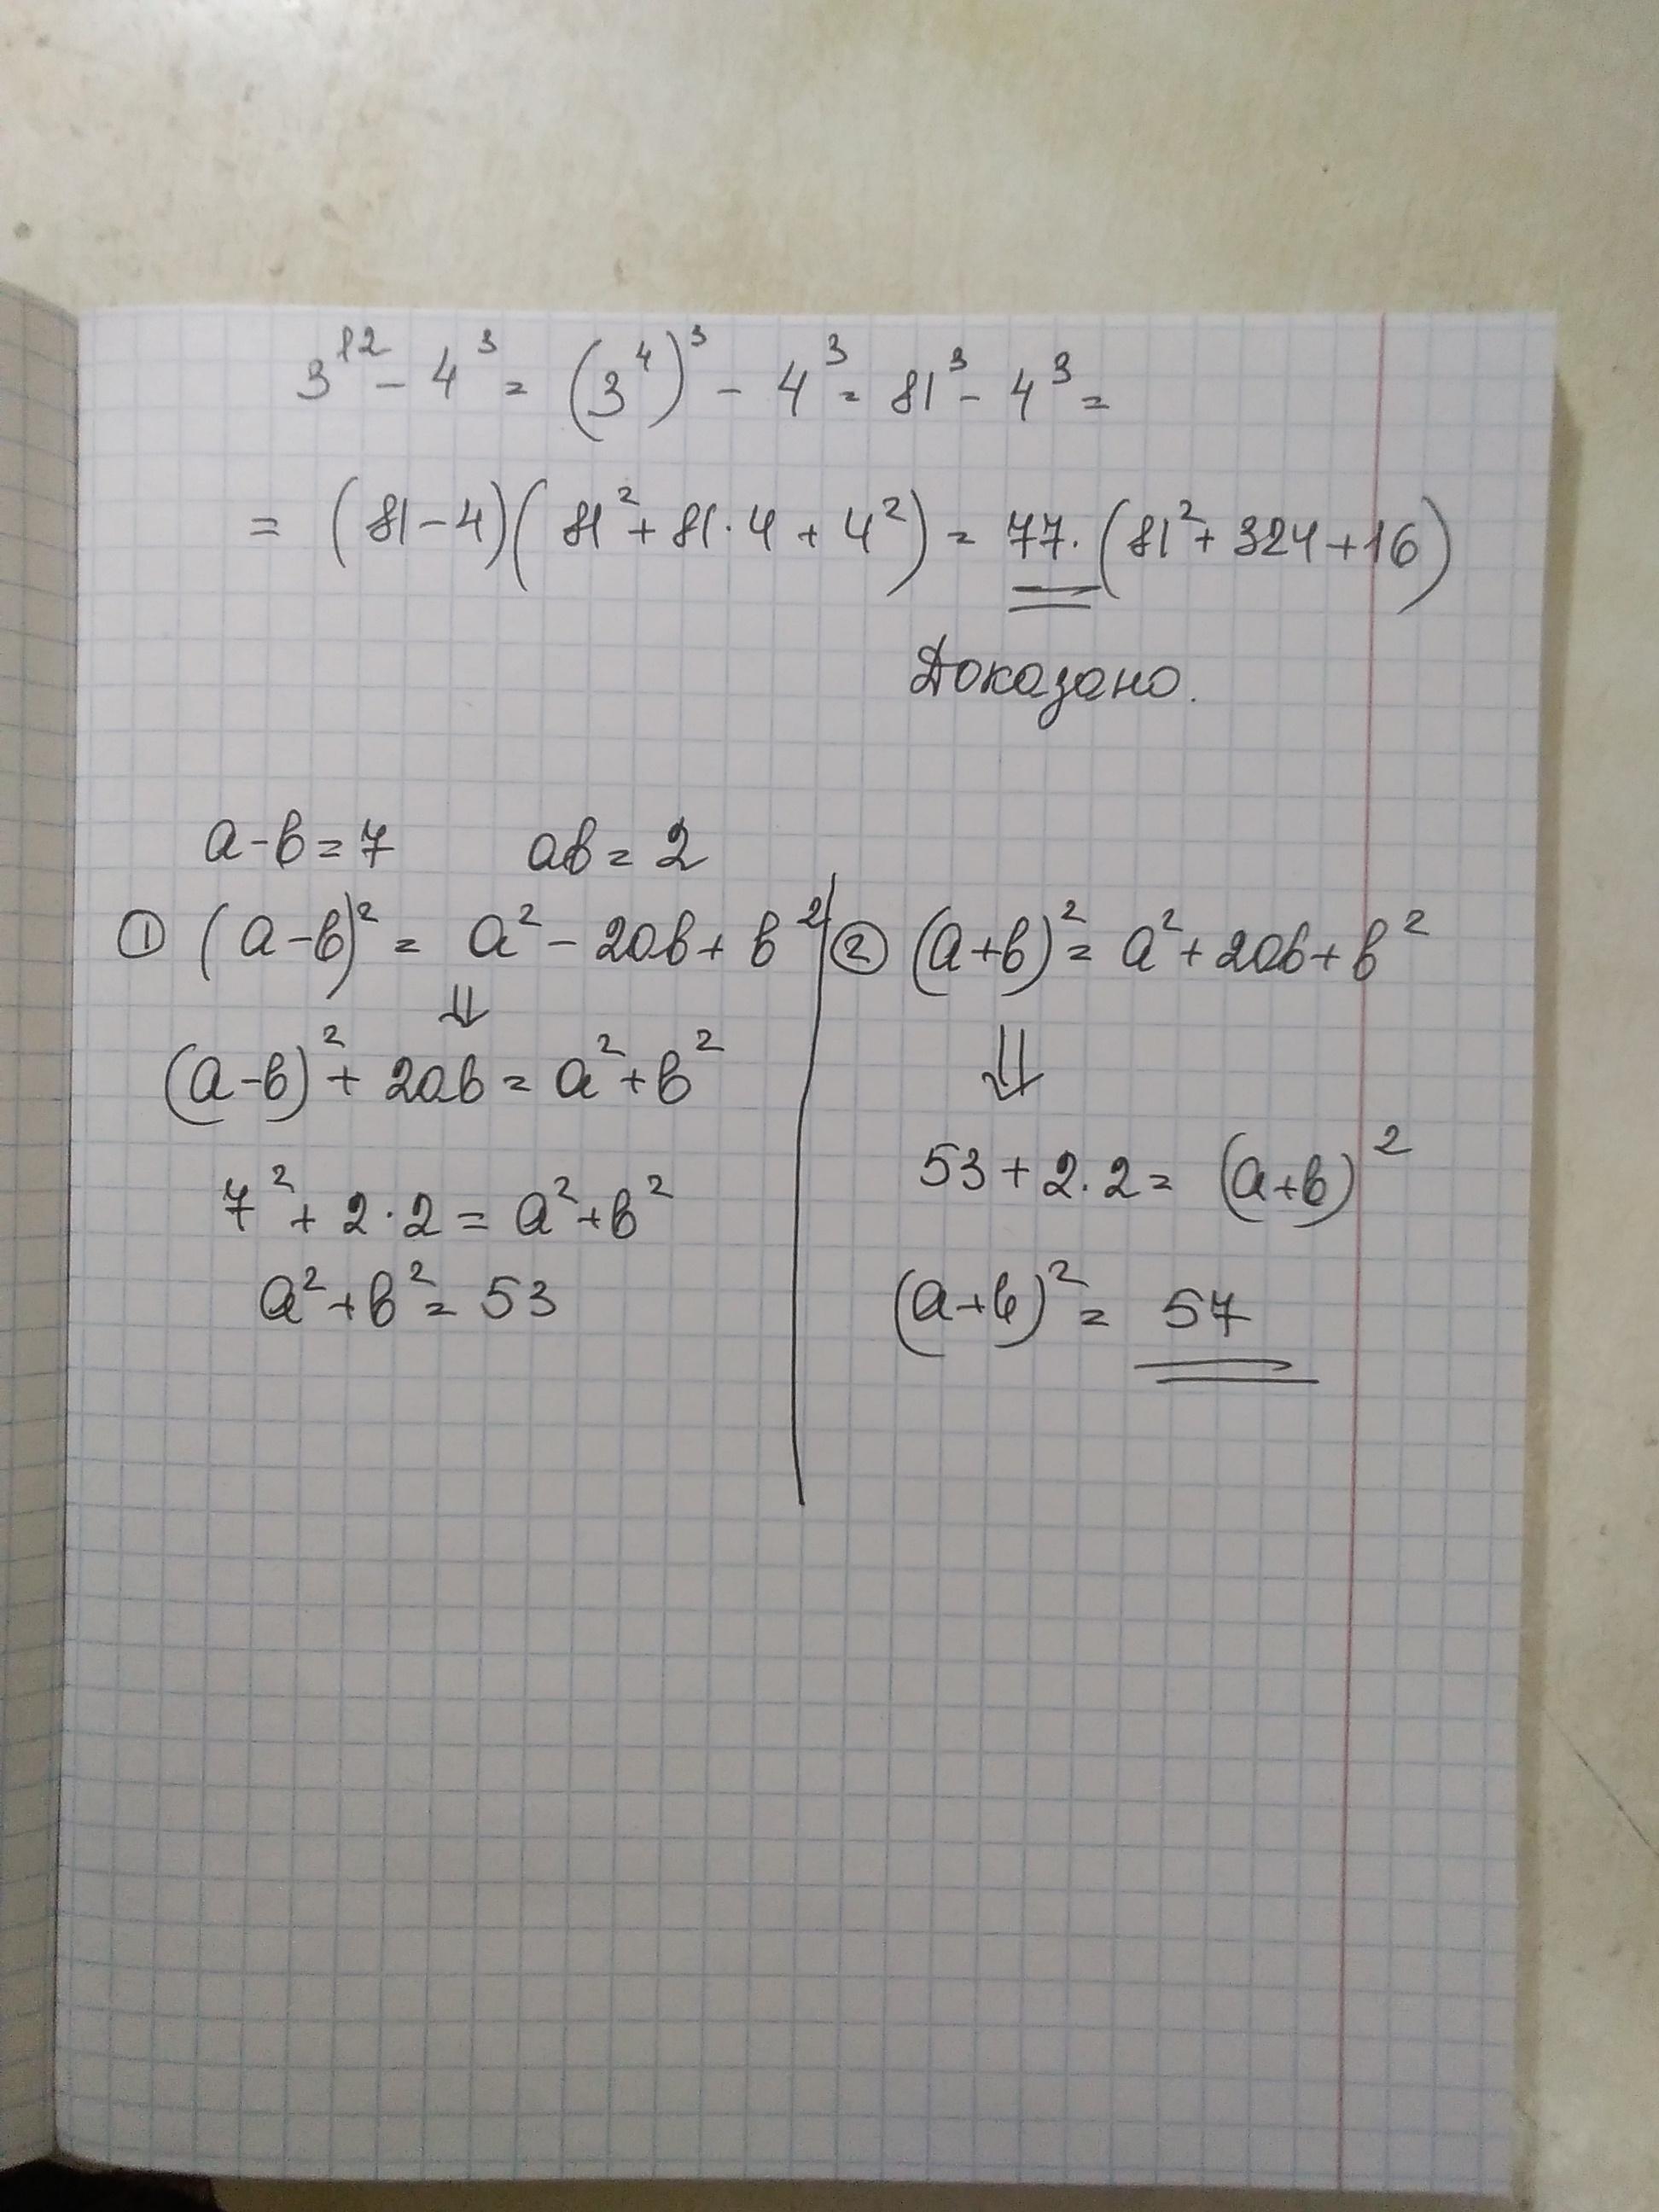 3¹² - 4³ = (3⁴)³ - 4³ = 81³ - 4³ =
= (81-4)(81² + 81·4 + 4²) = 77·(81² + 324 + 16)
Доказано.
a-в=7 ав=2
① (a-в)² = a² - 2ав + в²
⇓
(a-в)² + 2ав = a² + в²
7² + 2·2 = a² + в²
a² + в² = 53
② (a+в)² = a² + 2ав + в²
⇓
53 + 2·2 = (a+в)²
(a+в)² = 57